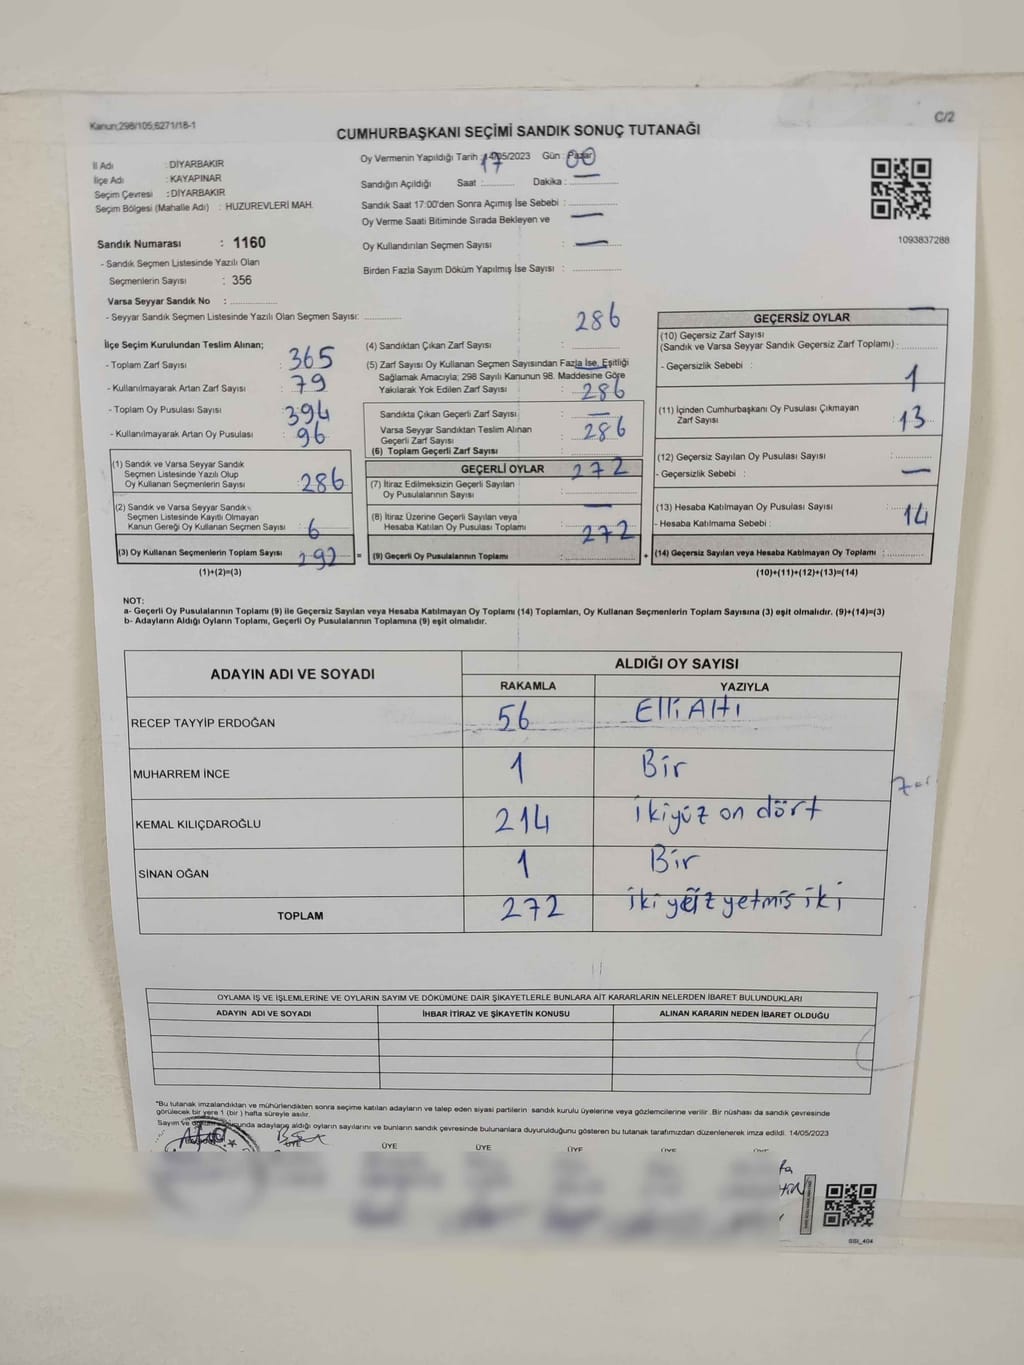 Kanun;298/105,6271/18-1
C/2
CUMHURBAŞKANI SEÇİMİ SANDIK SONUÇ TUTANAĞI
İl Adı : DİYARBAKIR
İlçe Adı : KAYAPINAR
Seçim Çevresi : DİYARBAKIR
Seçim Bölgesi (Mahalle Adı) : HUZUREVLERİ MAH.
Sandık Numarası : 1160
- Sandık Seçmen Listesinde Yazılı Olan
Seçmenlerin Sayısı : 356
Varsa Seyyar Sandık No :
- Seyyar Sandık Seçmen Listesinde Yazılı Olan Seçmen Sayısı:
Oy Vermenin Yapıldığı Tarih : 14/05/2023 Gün : Pazar
Sandığın Açıldığı Saat : 17 Dakika : 00
Sandık Saat 17:00'den Sonra Açımış İse Sebebi : —
Oy Verme Saati Bitiminde Sırada Bekleyen ve
Oy Kullandırılan Seçmen Sayısı : —
Birden Fazla Sayım Döküm Yapılmış İse Sayısı : —
1093837288
İlçe Seçim Kurulundan Teslim Alınan;
- Toplam Zarf Sayısı : 365
- Kullanılmayarak Artan Zarf Sayısı : 79
- Toplam Oy Pusulası Sayısı : 394
- Kullanılmayarak Artan Oy Pusulası : 96
(1) Sandık ve Varsa Seyyar Sandık
Seçmen Listesinde Yazılı Olup
Oy Kullanan Seçmenlerin Sayısı : 286
(2) Sandık ve Varsa Seyyar Sandık
Seçmen Listesinde Kayıtlı Olmayan
Kanun Gereği Oy Kullanan Seçmen Sayısı : 6
(3) Oy Kullanan Seçmenlerin Toplam Sayısı : 292
(1)+(2)=(3)
(4) Sandıktan Çıkan Zarf Sayısı : 286
(5) Zarf Sayısı Oy Kullanan Seçmen Sayısından Fazla İse, Eşitliği
Sağlamak Amacıyla; 298 Sayılı Kanunun 98. Maddesine Göre
Yakılarak Yok Edilen Zarf Sayısı : —
Sandıkta Çıkan Geçerli Zarf Sayısı : 286
Varsa Seyyar Sandıktan Teslim Alınan
Geçerli Zarf Sayısı : —
(6) Toplam Geçerli Zarf Sayısı : 286
GEÇERLİ OYLAR
(7) İtiraz Edilmeksizin Geçerli Sayılan
Oy Pusulalarının Sayısı : 272
(8) İtiraz Üzerine Geçerli Sayılan veya
Hesaba Katılan Oy Pusulaları Toplamı : —
= (9) Geçerli Oy Pusulalarının Toplamı : 272
GEÇERSİZ OYLAR
(10) Geçersiz Zarf Sayısı
(Sandık ve Varsa Seyyar Sandık Geçersiz Zarf Toplamı) : —
- Geçersizlik Sebebi :
(11) İçinden Cumhurbaşkanı Oy Pusulası Çıkmayan
Zarf Sayısı : 1
(12) Geçersiz Sayılan Oy Pusulası Sayısı : 13
- Geçersizlik Sebebi :
(13) Hesaba Katılmayan Oy Pusulası Sayısı : —
- Hesaba Katılmama Sebebi :
+ (14) Geçersiz Sayılan veya Hesaba Katılmayan Oy Toplamı : 14
(10)+(11)+(12)+(13)=(14)
NOT:
a- Geçerli Oy Pusulalarının Toplamı (9) ile Geçersiz Sayılan veya Hesaba Katılmayan Oy Toplamı (14) Toplamları, Oy Kullanan Seçmenlerin Toplam Sayısına (3) eşit olmalıdır. (9)+(14)=(3)
b- Adayların Aldığı Oyların Toplamı, Geçerli Oy Pusulalarının Toplamına (9) eşit olmalıdır.
ADAYIN ADI VE SOYADI ALDIĞI OY SAYISI
RAKAMLA YAZIYLA
RECEP TAYYİP ERDOĞAN 56 Elli Altı
MUHARREM İNCE 1 Bir
KEMAL KILIÇDAROĞLU 214 ikiyüz on dört
SİNAN OĞAN 1 Bir
TOPLAM 272 iki yüz yetmiş iki
OYLAMA İŞ VE İŞLEMLERİNE VE OYLARIN SAYIM VE DÖKÜMÜNE DAİR ŞİKAYETLERLE BUNLARA AİT KARARLARIN NELERDEN İBARET BULUNDUKLARI
ADAYIN ADI VE SOYADI İHBAR İTİRAZ VE ŞİKAYETİN KONUSU ALINAN KARARIN NEDEN İBARET OLDUĞU
"Bu tutanak imzalandıktan ve mühürlendikten sonra seçime katılan adayların ve talep eden siyasi partilerin sandık kurulu üyelerine veya gözlemcilerine verilir. Bir nüshası da sandık çevresinde
görülecek bir yere 1 (bir ) hafta süreyle asılır.
Sayım ve adayların aldığı oyların sayılarını ve bunların sandık çevresinde bulunanlara duyurulduğunu gösteren bu tutanak tarafımızdan düzenlenerek imza edildi. 14/05/2023
ÜYE ÜYE ÜYE ÜYE ÜYE
SSI_404